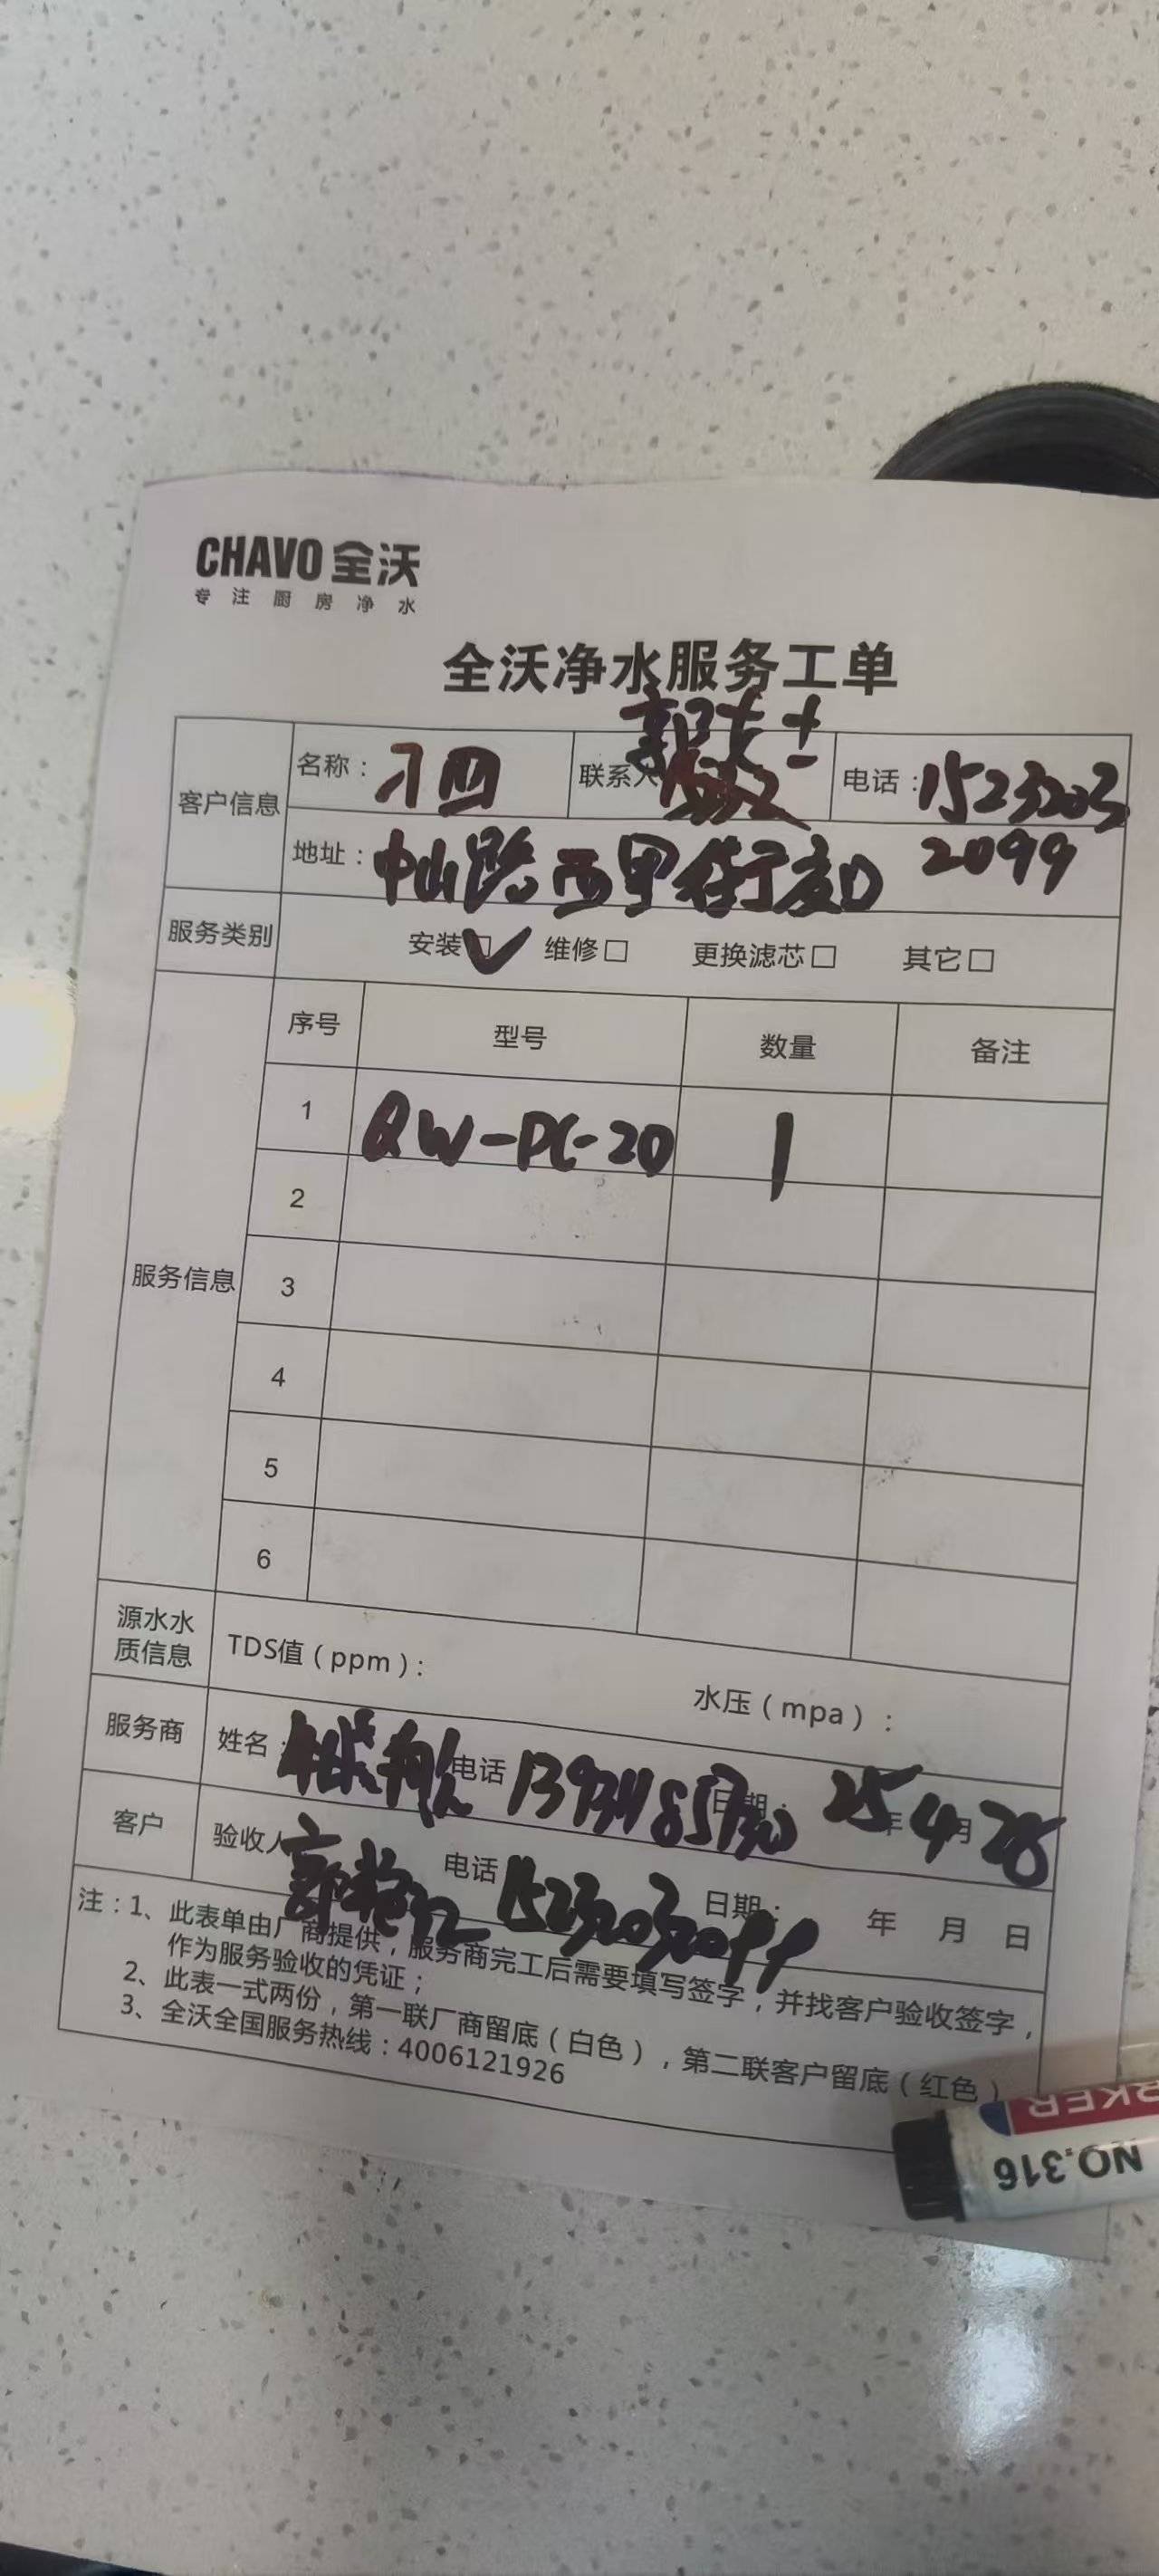 CHAVO 全沃
专注厨房净水
全沃净水服务工单
客户信息 名称：刁四 联系人 郭女士 电话：1523203
2099
地址：中山路西里街交口
服务类别 安装☑ 维修□ 更换滤芯□ 其它□
服务信息 序号 型号 数量 备注
1 QW-PC-20 1
2
3
4
5
6
源水水质信息 TDS值（ppm）： 水压（mpa）：
服务商 姓名： 电话 日期： 25年4月28
客户 验收人 郭艳红 电话 15232032099 日期： 年 月 日
注：1、此表单由厂商提供，服务商完工后需要填写签字，并找客户验收签字，
作为服务验收的凭证；
2、此表一式两份，第一联厂商留底（白色），第二联客户留底（红色）
3、全沃全国服务热线：4006121926
RKER
NO.316